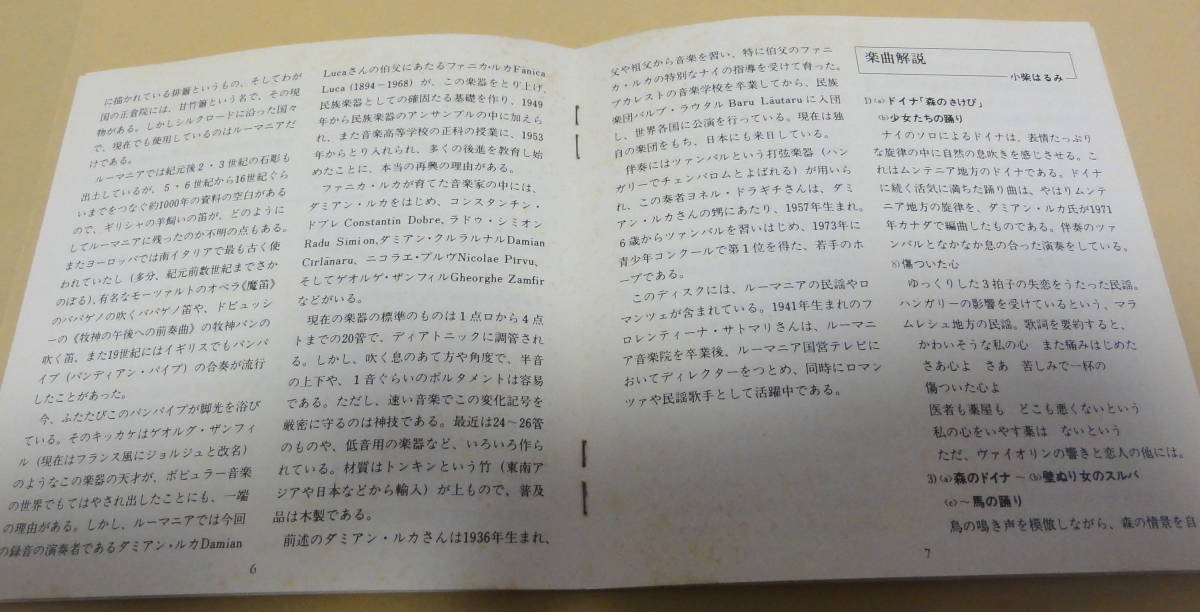 に描かれている排簫というもの、そしてわが
国の正倉院には、甘竹簫という名で、その現
物がある。しかしシルクロードに沿った国々
で、現在でも使用しているのはルーマニアだ
けである。
ルーマニアでは紀元後2・3世紀の石彫も
出土しているが、5・6世紀から16世紀ぐら
いまでをつなぐ約1000年の資料の空白がある
ので、ギリシャの羊飼いの笛が、どのように
してルーマニアに残ったのか不明の点もある。
またヨーロッパでは南イタリアで最も古く使
われていたし(多分、紀元前数世紀までさか
のぼる)、有名なモーツァルトのオペラ《魔笛》
のパパゲノの吹くパパゲノ笛や、ドビュッシ
ーの《牧神の午後への前奏曲》の牧神パンの
吹く笛、また19世紀にはイギリスでもパンパ
イプ(パンディアン・パイプ)の合奏が流行
したことがあった。
今、ふたたびこのパンパイプが脚光を浴び
ている。そのキッカケはゲオルグ・ザンフィ
ル(現在はフランス風にジョルジュと改名)
のようなこの楽器の天才が、ポピュラー音楽
の世界でもてはやされ出したことにも、一端
の理由がある。しかし、ルーマニアでは今回
の録音の演奏者であるダミアン・ルカDamian
6
Lucaさんの伯父にあたるファニカ・ルカFănica
Luca (1894−1968) が、この楽器をとり上げ、
民族楽器としての確固たる基礎を作り、1949
年から民族楽器のアンサンブルの中に加えら
れ、また音楽高等学校の正科の授業に、1953
年からとり入れられ、多くの後進を教育し始
めたことに、本当の再興の理由がある。
ファニカ・ルカが育てた音楽家の中には、
ダミアン・ルカをはじめ、コンスタンチン・
ドブレ Constantin Dobre、ラドゥ・シミオン
Radu Simion,ダミアン・クルラルナルDamian
Cîrlănaru、ニコラエ・プルヴNicolae Pîrvu、
そしてゲオルゲ・ザンフィルGheorghe Zamfir
などがいる。
現在の楽器の標準のものは1点ロから4点
トまでの20管で、ディアトニックに調管され
る。しかし、吹く息のあて方や角度で、半音
の上下や、1音ぐらいのポルタメントは容易
である。ただし、速い音楽でこの変化記号を
厳密に守るのは神技である。最近は24〜26管
のものや、低音用の楽器など、いろいろ作ら
れている。材質はトンキンという竹(東南ア
ジアや日本などから輸入)が上もので、普及
品は木製である。
前述のダミアン・ルカさんは1936年生まれ、
父や祖父から音楽を習い、特に伯父のファニ
カ・ルカの特別なナイの指導を受けて育った。
ブカレストの音楽学校を卒業してから、民族
楽団バルブ・ラウタル Baru Lăutaru に入団
し、世界各国に公演を行っている。現在は独
自の楽団をもち、日本にも来日している。
伴奏にはツァンバルという打弦楽器(ハン
ガリーでチェンバロムとよばれる)が用いら
れ、この奏者ヨネル・ドラギチさんは、ダミ
アン・ルカさんの甥にあたり、1957年生まれ。
6歳からツァンバルを習いはじめ、1973年に
青少年コンクールで第1位を得た、若手のホ
ープである。
このディスクには、ルーマニアの民謡やロ
マンツェが含まれている。1941年生まれのフ
ロレンティーナ・サトマリさんは、ルーマニ
ア音楽院を卒業後、ルーマニア国営テレビに
おいてディレクターをつとめ、同時にロマン
ツァや民謡歌手として活躍中である。
楽曲解説
小柴はるみ
1) (a) ドイナ「森のさけび」
(b) 少女たちの踊り
ナイのソロによるドイナは、表情たっぷり
な旋律の中に自然の息吹きを感じさせる。こ
れはムンテニア地方のドイナである。ドイナ
に続く活気に満ちた踊り曲は、やはりムンテ
ニア地方の旋律を、ダミアン・ルカ氏が1971
年カナダで編曲したものである。伴奏のツァ
ンバルとなかなか息の合った演奏をしている。
8) 傷ついた心
ゆっくりした3拍子の失恋をうたった民謡。
ハンガリーの影響を受けているという、マラ
ムレシュ地方の民謡。歌詞を要約すると、
かわいそうな私の心 また痛みはじめた
さあ心よ さあ 苦しみで一杯の
傷ついた心よ
医者も薬屋も どこも悪くないという
私の心をいやす薬は ないという
ただ、ヴァイオリンの響きと恋人の他には。
3) (a) 森のドイナ 〜 (b) 壁ぬり女のスルバ
(c) 〜 馬の踊り
鳥の鳴き声を模倣しながら、森の情景を自
7